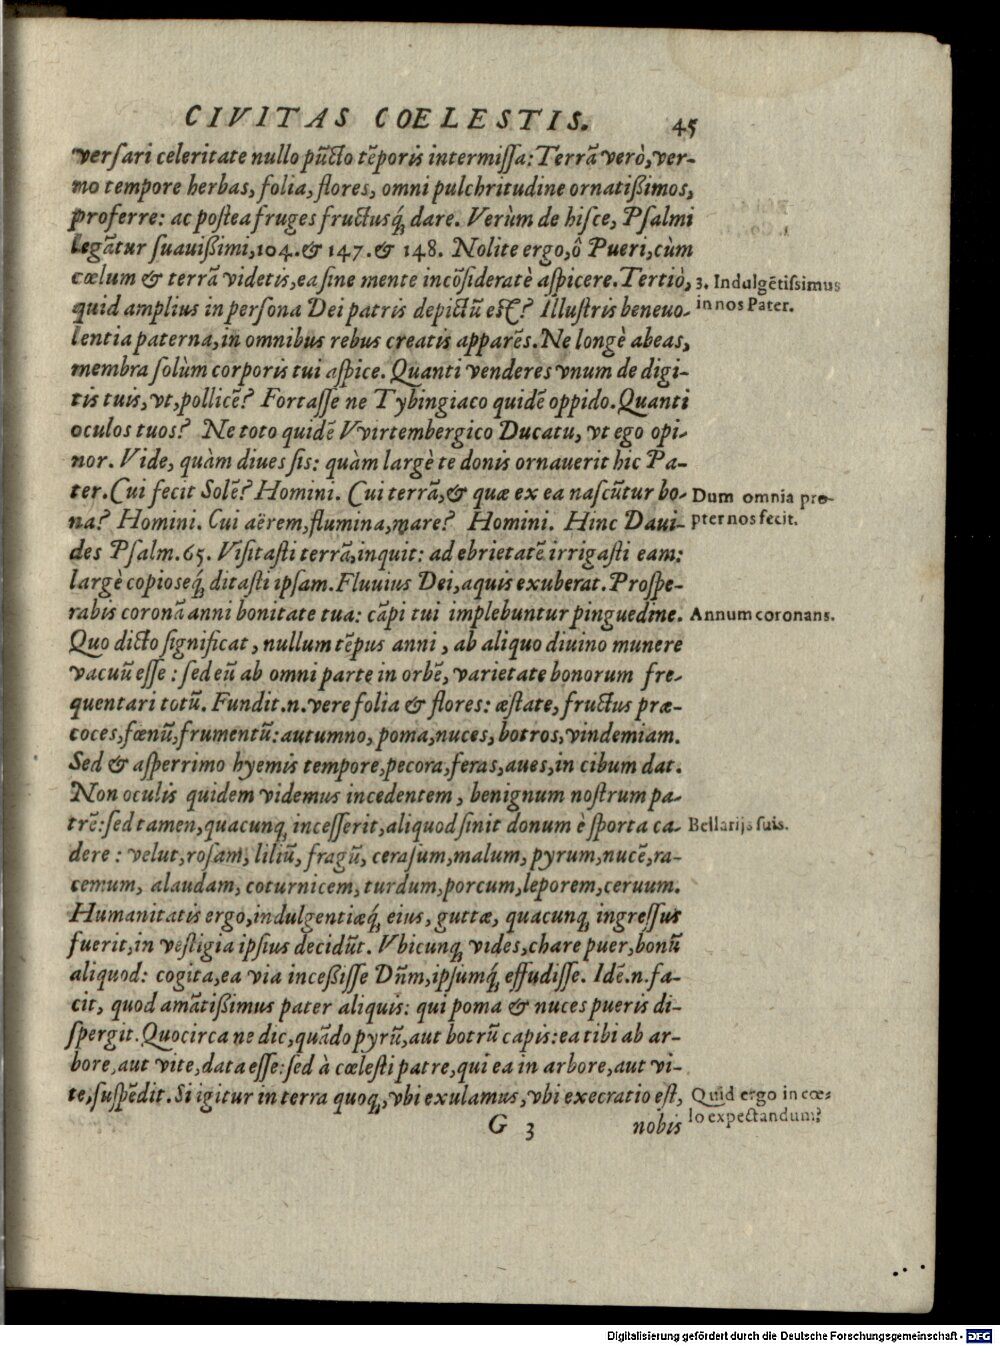 CIVITAS COELESTIS. 45
versari celeritate nullo pūcto tēporis intermissa: Terrā verò, ver-
no tempore herbas, folia, flores, omni pulchritudine ornatißimos,
proferre: ac postea fruges fructusq́; dare. Verùm de hisce, Psalmi
legātur suauißimi, 104. & 147. & 148. Nolite ergo, ô Pueri, cùm
cœlum & terrā videtis, ea sine mente incōsideratè aspicere. Tertiò,
3. Indulgētissimus
in nos Pater.
quid amplius in persona Dei patris depictū est? Illustris beneuo-
lentia paterna, in omnibus rebus creatis apparēs. Ne longè abeas,
membra solùm corporis tui aspice. Quanti venderes vnum de digi-
tis tuis, vt, pollicē? Fortasse ne Tybingiaco quidē oppido. Quanti
oculos tuos? Ne toto quidē Vvirtembergico Ducatu, vt ego opi-
nor. Vide, quàm diues sis: quàm largè te donis ornauerit hic Pa-
ter. Cui fecit Solē? Homini. Cui terrā, & quæ ex ea nascūtur bo-
Dum omnia pro-
pter nos fecit.
na? Homini. Cui aërem, flumina, mare? Homini. Hinc Daui-
des Psalm. 65. Visitasti terrā, inquit: ad ebrietatē irrigasti eam:
largè copioseq́; ditasti ipsam. Fluuius Dei, aquis exuberat. Prospe-
rabis coronā anni bonitate tua: cāpi tui implebuntur pinguedine.
Annum coronans.
Quo dicto significat, nullum tēpus anni, ab aliquo diuino munere
vacuū esse: sed eū ab omni parte in orbē, varietate bonorum fre-
quentari totū. Fundit .n. vere folia & flores: æstate, fructus præ-
coces, fœnū, frumentū: autumno, poma, nuces, botros, vindemiam.
Sed & asperrimo hyemis tempore, pecora, feras, aues, in cibum dat.
Non oculis quidem videmus incedentem, benignum nostrum pa-
trē: sed tamen, quacunq; incesserit, aliquod sinit donum è sporta ca-
Bellarijs suis.
dere: velut, rosam, liliū, fragū, cerasum, malum, pyrum, nucē, ra-
cemum, alaudam, coturnicem, turdum, porcum, leporem, ceruum.
Humanitatis ergo, indulgentiæq́; eius, guttæ, quacunq; ingressus
fuerit, in vestigia ipsius decidūt. Vbicunq; vides, chare puer, bonū
aliquod: cogita, ea via inceßisse Dn̄m, ipsumq́; effudisse. Idē .n. fa-
cit, quod amātißimus pater aliquis: qui poma & nuces pueris di-
spergit. Quocirca ne dic, quādo pyrū, aut botrū capis: ea tibi ab ar-
bore, aut vite, data esse: sed à cœlesti patre, qui ea in arbore, aut vi-
te, suspēdit. Si igitur in terra quoq;, vbi exulamus, vbi execratio est,
Quid ergo in cœ-
lo expectandum?
G 3 nobis
Digitalisierung gefördert durch die Deutsche Forschungsgemeinschaft - DFG